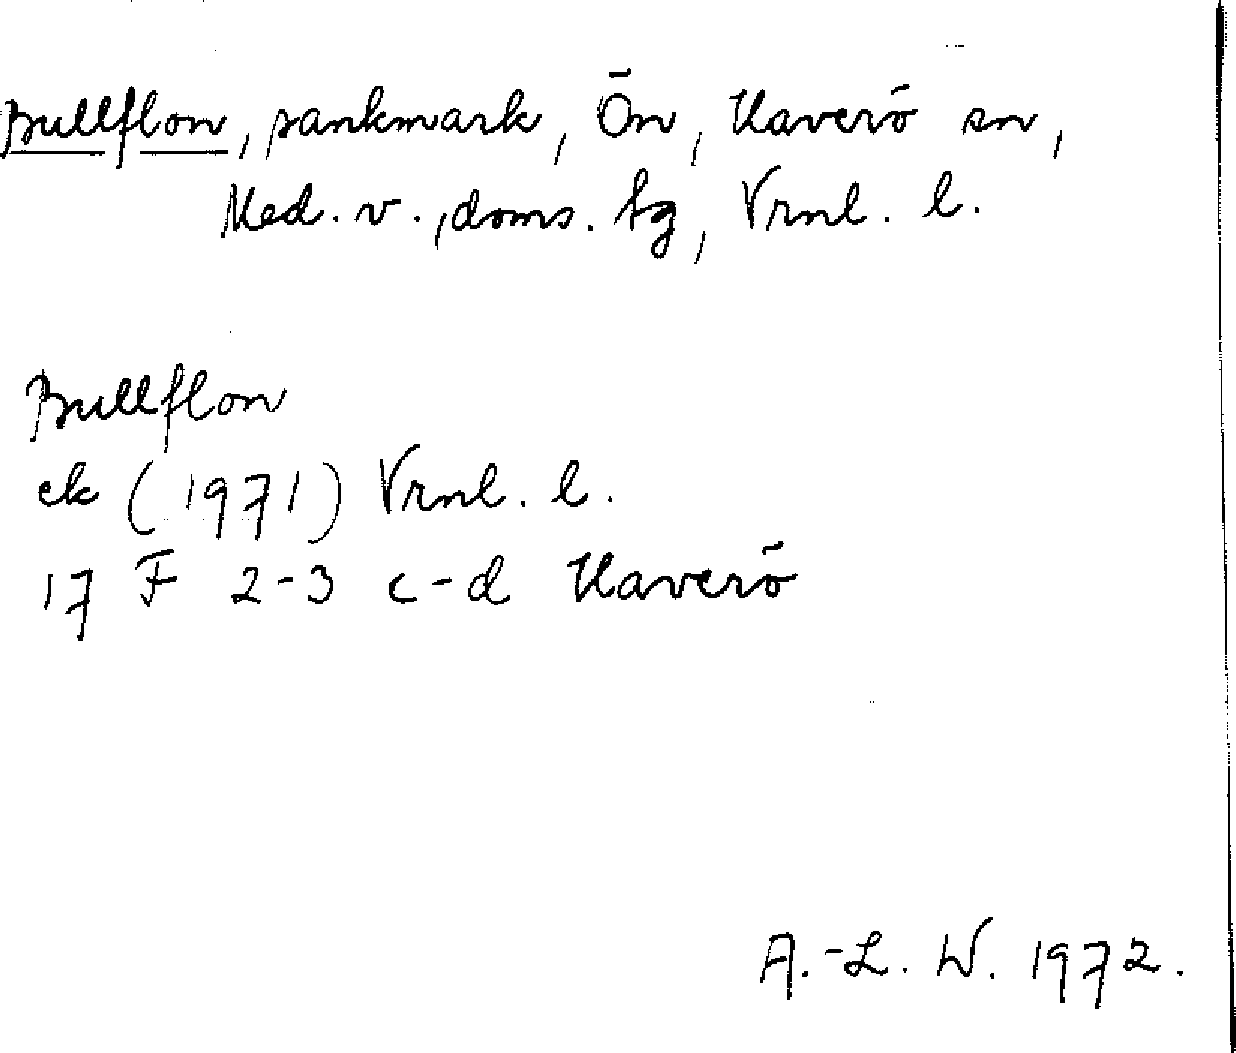 Bullflon, sankmark, Ön, Haverö sn,
Med. v., doms. tg, Vrnl. l.
Bullflon
ek (1971) Vrnl. l.
17 F 2-3 c-d Haverö
A.-L. W. 1972.